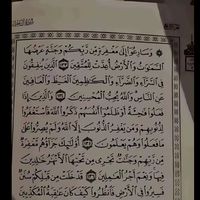 ۞ وَسَارِعُوٓا۟ إِلَىٰ مَغْفِرَةٍ مِّن رَّبِّكُمْ وَجَنَّةٍ عَرْضُهَا
ٱلسَّمَٰوَٰتُ وَٱلْأَرْضُ أُعِدَّتْ لِلْمُتَّقِينَ ١٣٣ ٱلَّذِينَ يُنفِقُونَ
فِى ٱلسَّرَّآءِ وَٱلضَّرَّآءِ وَٱلْكَٰظِمِينَ ٱلْغَيْظَ وَٱلْعَافِينَ
عَنِ ٱلنَّاسِ وَٱللَّهُ يُحِبُّ ٱلْمُحْسِنِينَ ١٣٤ وَٱلَّذِينَ إِذَا
فَعَلُوا۟ فَٰحِشَةً أَوْ ظَلَمُوٓا۟ أَنفُسَهُمْ ذَكَرُوا۟ ٱللَّهَ فَٱسْتَغْفَرُوا۟
لِذُنُوبِهِمْ وَمَن يَغْفِرُ ٱلذُّنُوبَ إِلَّا ٱللَّهُ وَلَمْ يُصِرُّوا۟ عَلَىٰ
مَا فَعَلُوا۟ وَهُمْ يَعْلَمُونَ ١٣٥ أُو۟لَٰٓئِكَ جَزَآؤُهُم مَّغْفِرَةٌ
مِّن رَّبِّهِمْ وَجَنَّٰتٌ تَجْرِى مِن تَحْتِهَا ٱلْأَنْهَٰرُ خَٰلِدِينَ
فِيهَا وَنِعْمَ أَجْرُ ٱلْعَٰمِلِينَ ١٣٦ قَدْ خَلَتْ مِن قَبْلِكُمْ سُنَنٌ
فَسِيرُوا۟ فِى ٱلْأَرْضِ فَٱنظُرُوا۟ كَيْفَ كَانَ عَٰقِبَةُ ٱلْمُكَذِّبِينَ